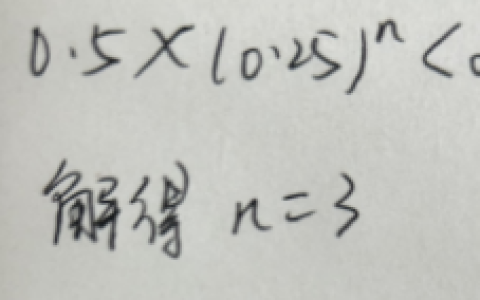 0.5×(0.25)ⁿ<
解得 n=3